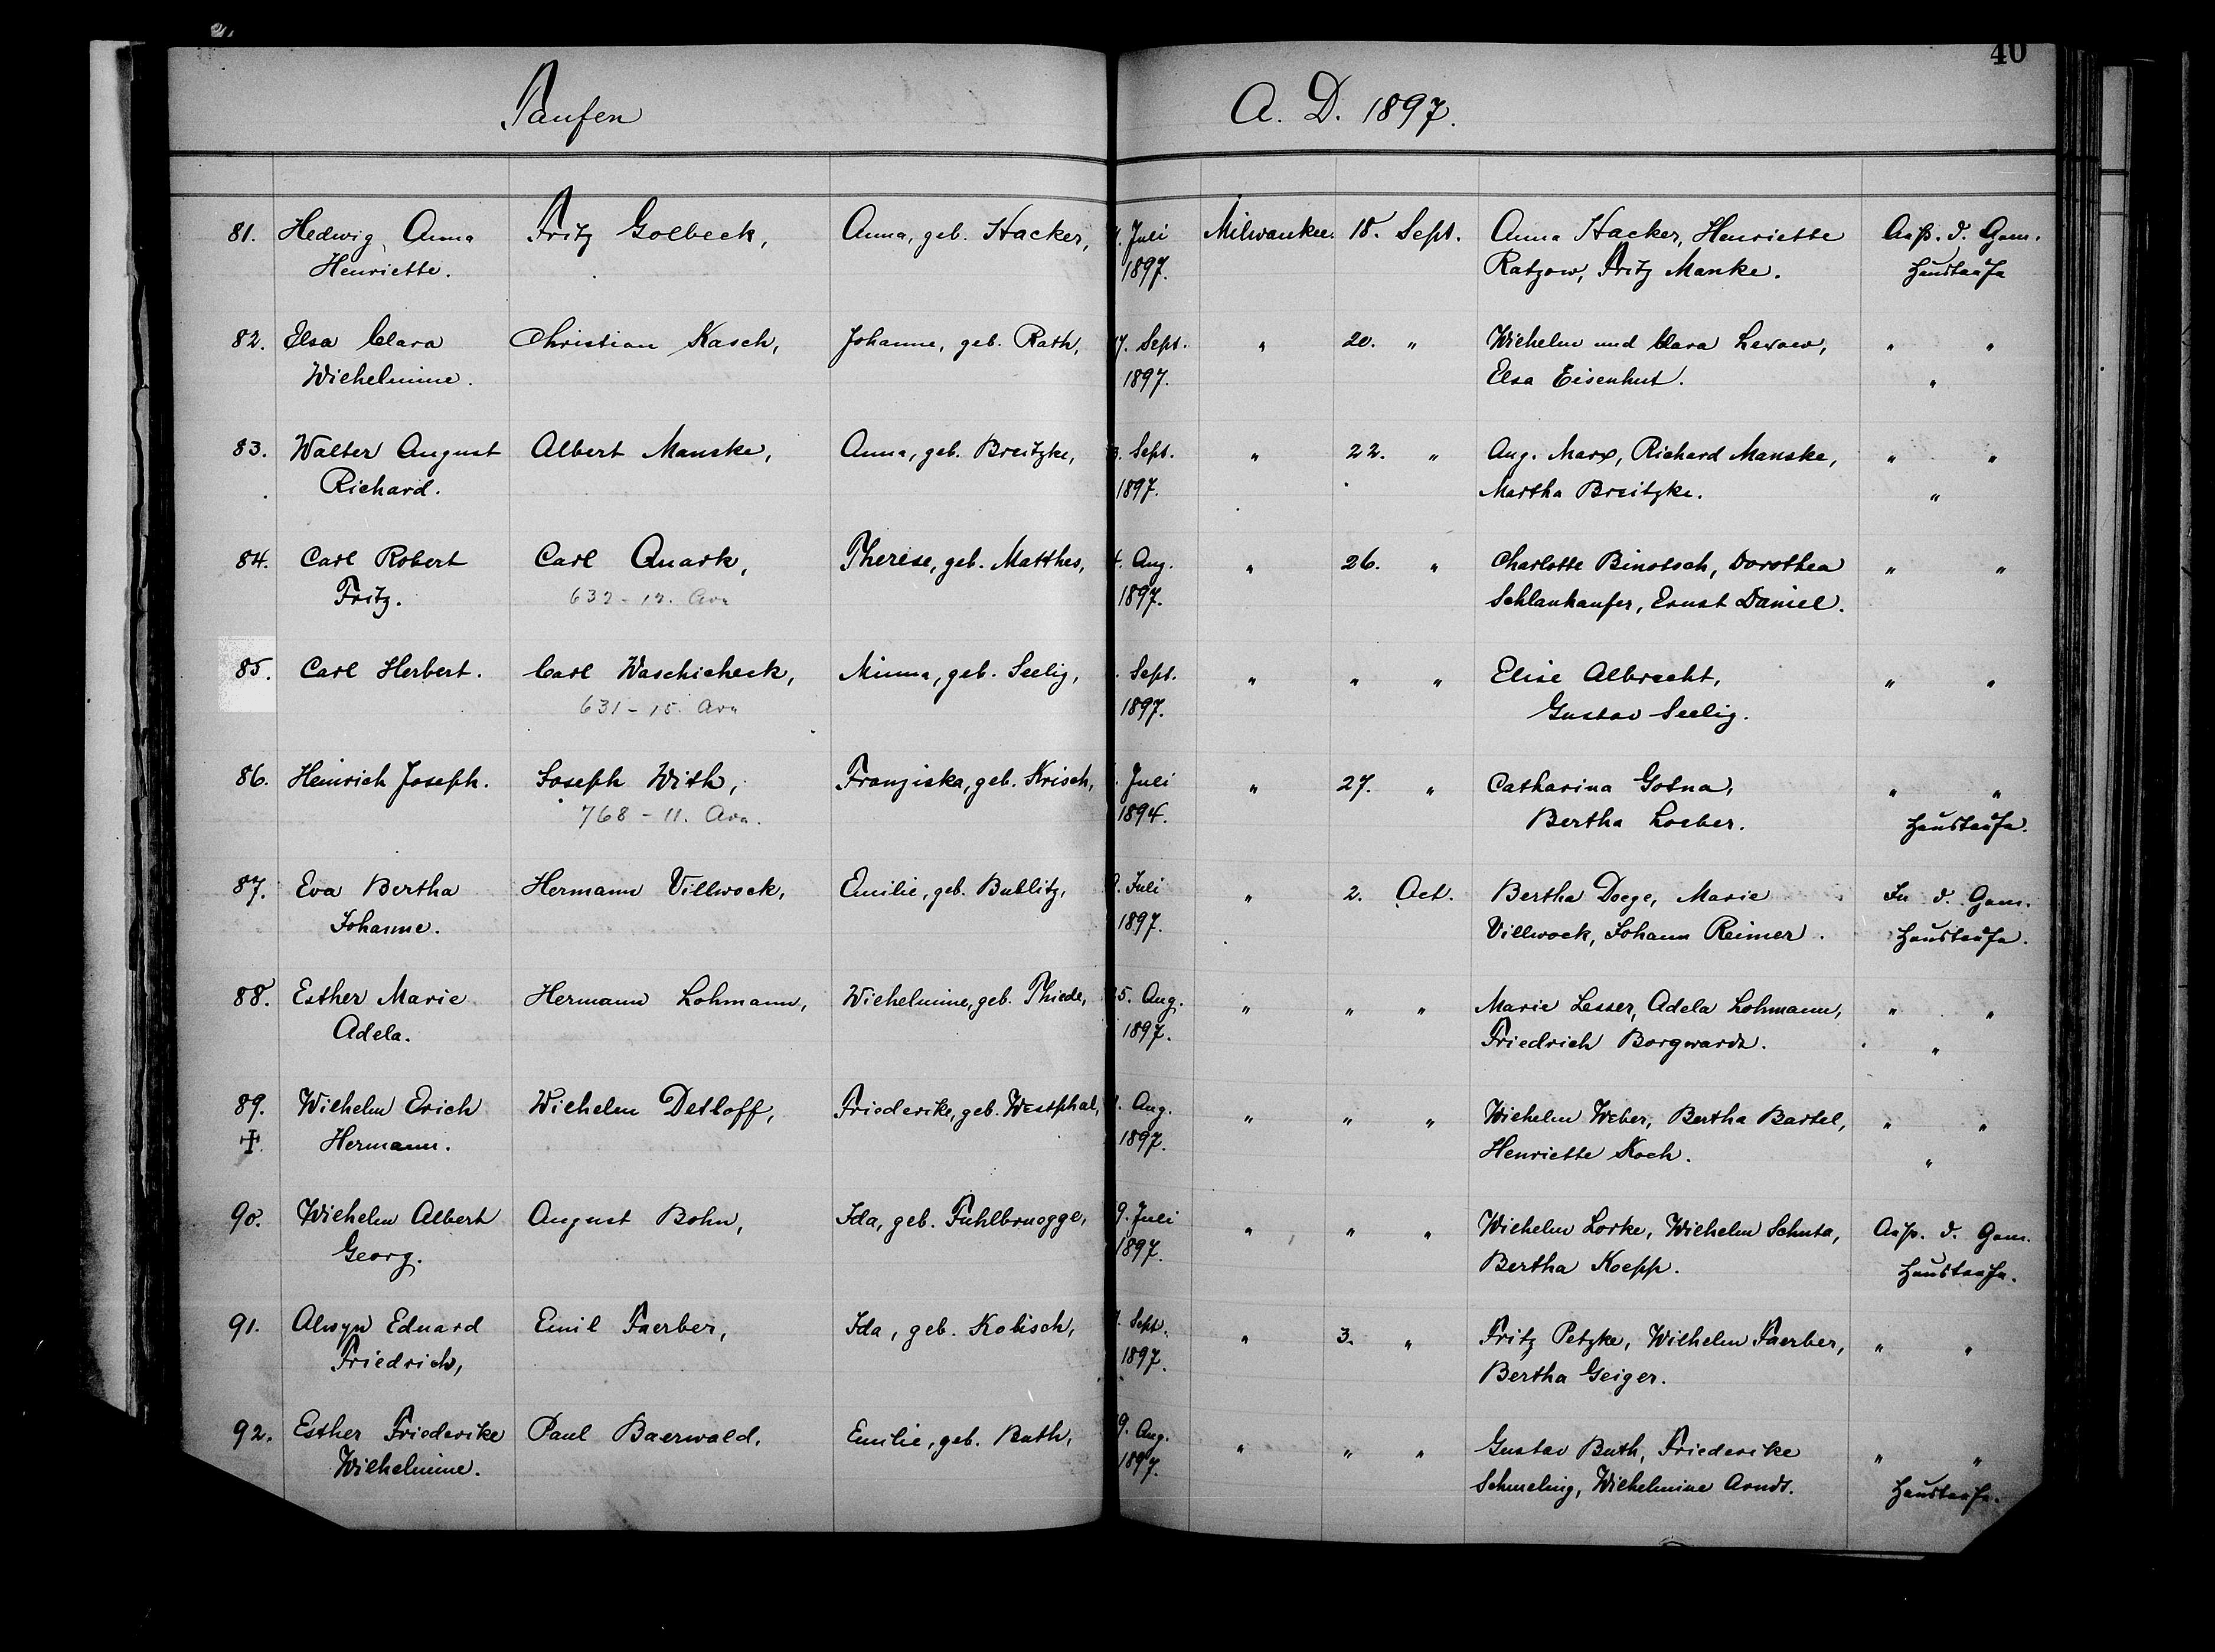 40
Taufen A. D. 1897.
81. Hedwig Anna Fritz Golbeck, Anna, geb. Hacker, Juli Milwaukee. 18. Sept. Anna Hacker, Henriette Auß. d. Gem.
Henriette. 1897. Ratzow, Fritz Manke. Haustaufe
82. Elsa Clara Christian Kasch, Johanne, geb. Rath, 7. Sept. " 20. " Wilhelm und Clara Lexow, " "
Wilhelmine. 1897. Elsa Eisenhut. "
83. Walter August Albert Manske, Anna, geb. Breitzke, Sept. " 22. " Aug. Marx, Richard Manske, " "
Richard. 1897. Martha Breitzke. "
84. Carl Robert Carl Quark, Therese, geb. Matthes, 4. Aug. " 26. " Charlotte Binotsch, Dorothea " "
Fritz. 632 - 12. Ave 1897. Schlankaufer, Ernst Daniel.
85. Carl Herbert. Carl Waschicheck, Minna, geb. Seelig, Sept. " " " Elise Albrecht, " "
631 - 15. Ave 1897. Gustav Seelig.
86. Heinrich Joseph. Joseph With, Franziska, geb. Krisch, Juli " 27. " Catharina Gotna, " "
768 - 11. Ave. 1894. Bertha Loeber. Haustaufe.
87. Eva Bertha Hermann Villwock, Emilie, geb. Bublitz, Juli " 2. Oct. Bertha Doege, Marie In d. Gem.
Johanne. 1897. Villwock, Johann Reimer. Haustaufe.
88. Esther Marie Hermann Lohmann, Wilhelmine, geb. Thiede, 5. Aug. " " " Marie Lesser, Adela Lohmann, " "
Adela. 1897. Friedrich Borgwardt. "
89. Wilhelm Erich Wilhelm Detloff, Friederike, geb. Westphal, Aug. " " " Wilhelm Weber, Bertha Bartel, " "
Hermann. 1897. Henriette Koch. "
90. Wilhelm Albert August Bohn, Ida, geb. Fuhlbruegge, 9. Juli " " " Wilhelm Lorke, Wilhelm Schuta, Auß. d. Gem.
Georg. 1897. Bertha Koepp. Haustaufe.
91. Alwyn Eduard Emil Faerber, Ida, geb. Kobisch, Sept. " 3. " Fritz Petzke, Wilhelm Faerber, " "
Friedrich, 1897. Bertha Geiger.
92. Esther Friederike Paul Baerwald, Emilie, geb. Buth, 9. Aug. " " " Gustav Buth, Friederike " "
Wilhelmine. 1897. Schmeling, Wilhelmine Arndt. Haustaufe.